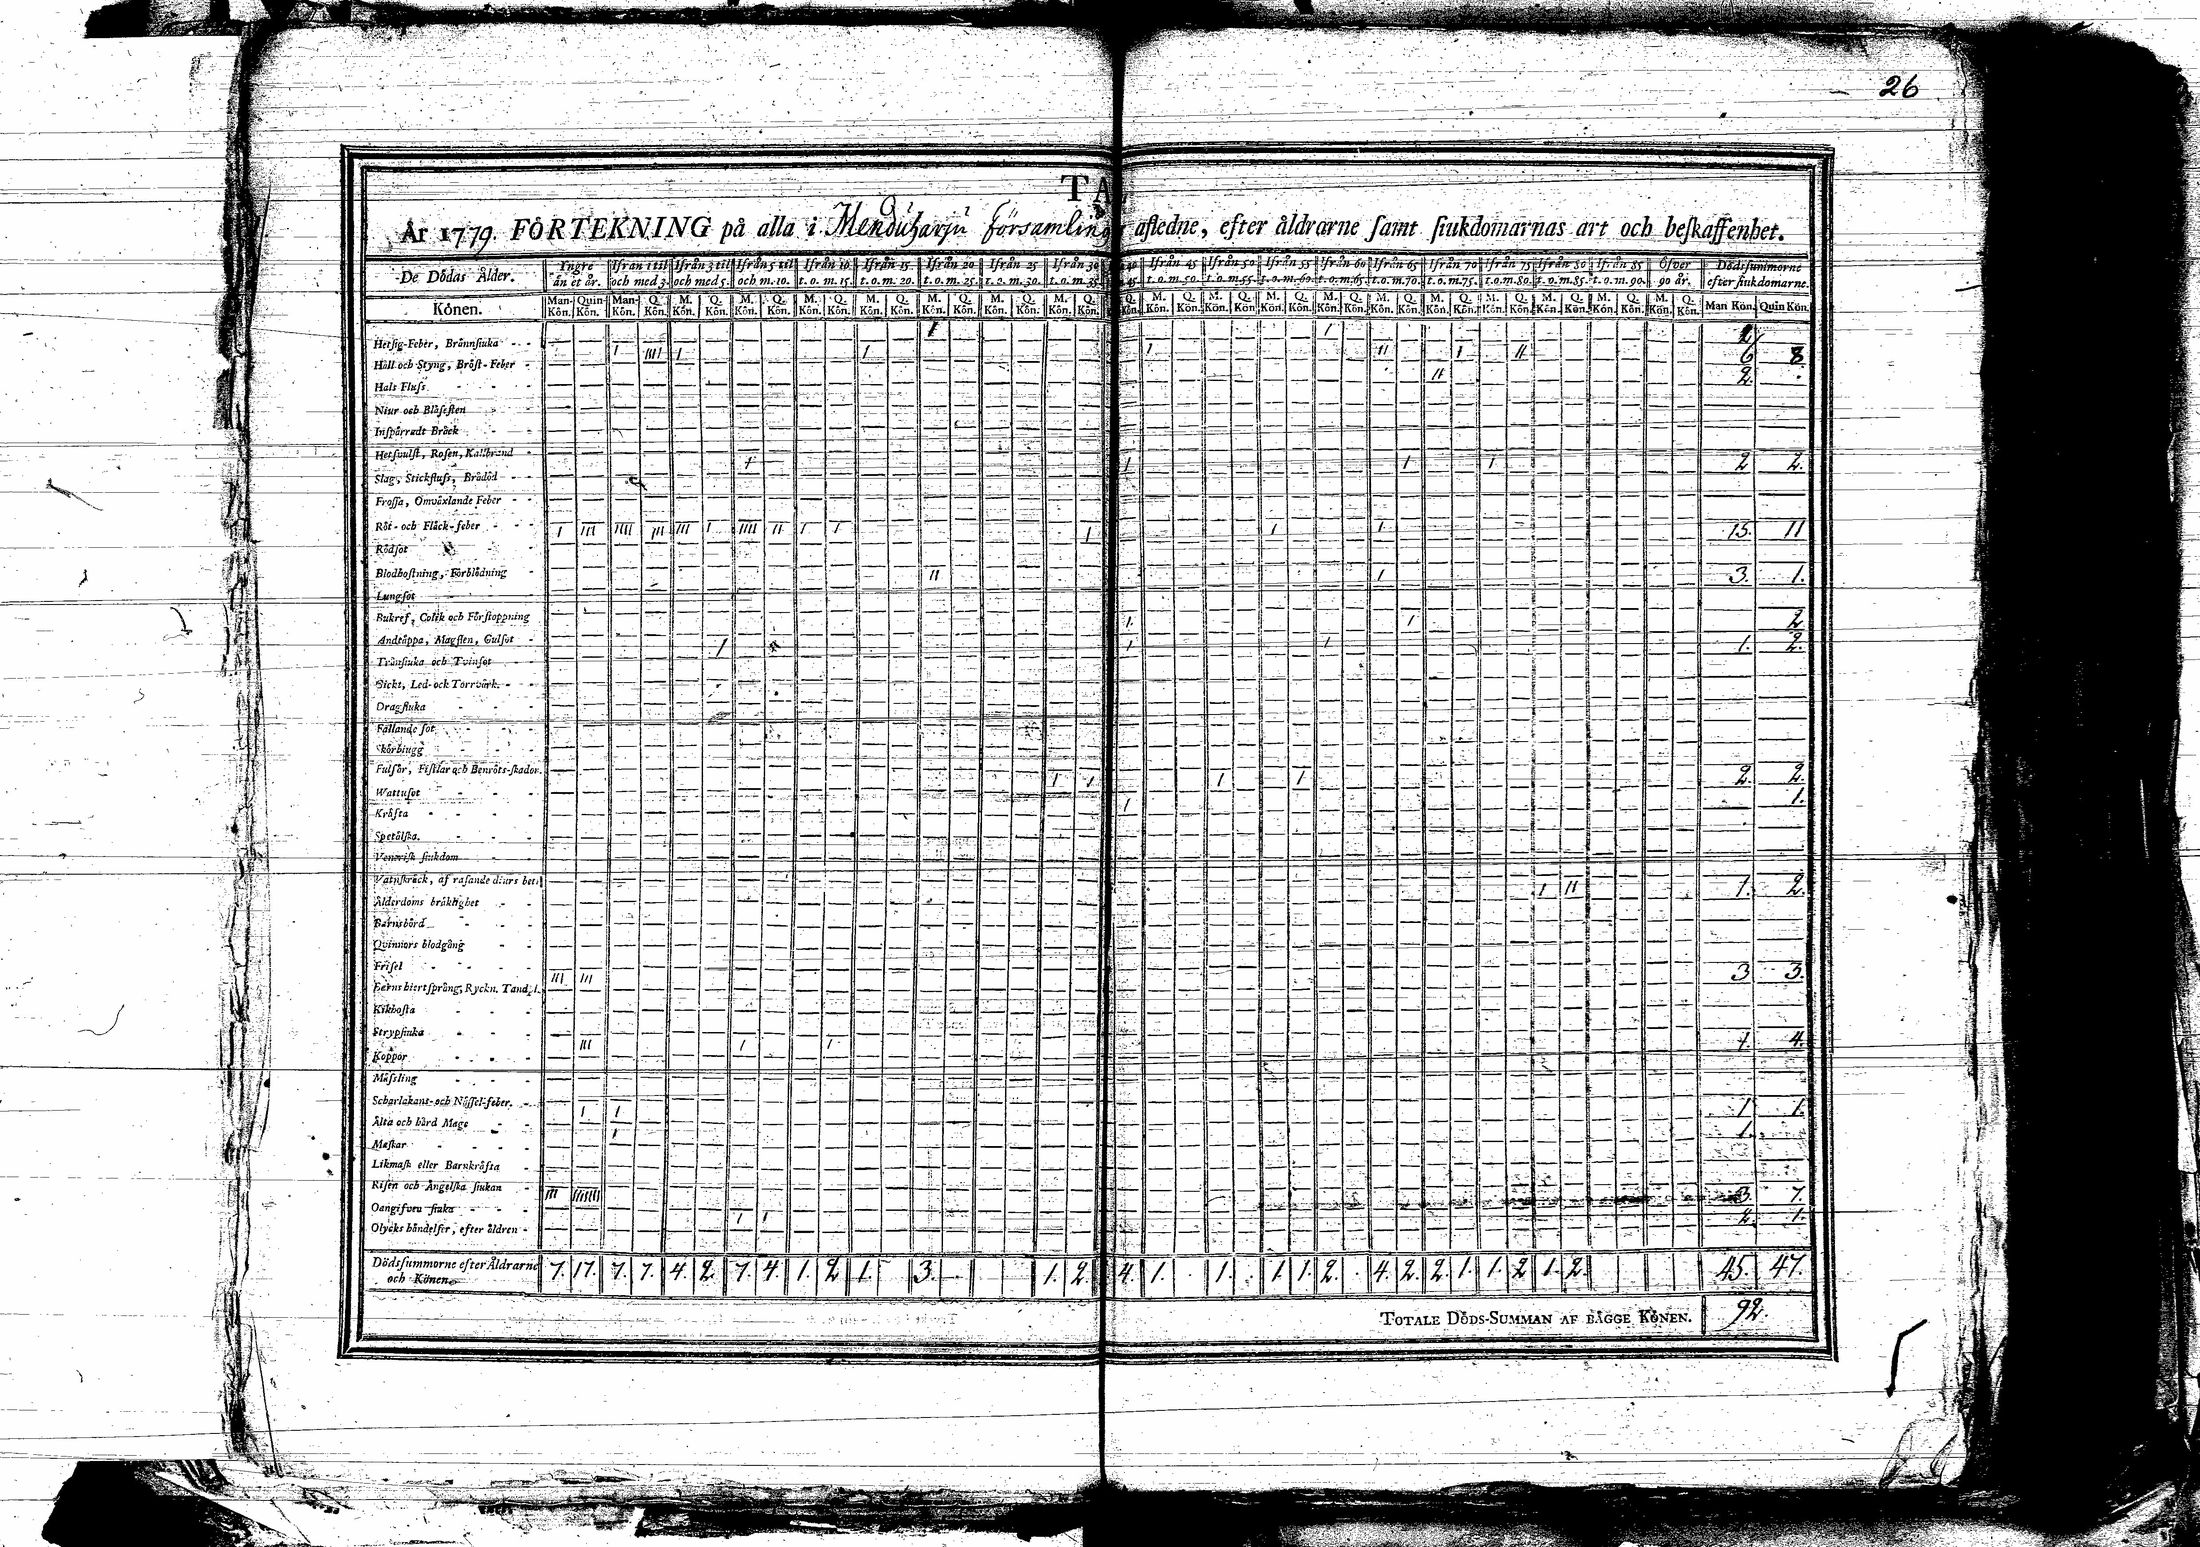 26
TA
År 1779. FÖRTEKNING på alla i Mendüharju Församling afledne, efter åldrarne samt siukdomarnas art och beskaffenhet.
De Dödas Ålder. Yngre än et år. Ifrån 1 til och med 3. Ifrån 3 til och med 5. Ifrån 5 til och m. 10. Ifrån 10 t.o.m. 15. Ifrån 15 t.o.m. 20. Ifrån 20 t.o.m. 25. Ifrån 25 t.o.m. 30. Ifrån 30 t.o.m. 35. Ifrån 45 t.o.m. 50. Ifrån 50 t.o.m. 55. Ifrån 55 t.o.m. 60. Ifrån 60 t.o.m. 65. Ifrån 65 t.o.m. 70. Ifrån 70 t.o.m. 75. Ifrån 75 t.o.m. 80. Ifrån 80 t.o.m. 85. Ifrån 85 t.o.m. 90. Öfver 90 år. Dödssummorne efter siukdomarne.
Könen. Man-Kön. Quin-Kön. Man-Kön. Q. Kön. M. Kön. Q. Kön. M. Kön. Q. Kön. M. Kön. Q. Kön. M. Kön. Q. Kön. M. Kön. Q. Kön. M. Kön. Q. Kön. M. Kön. Q. Kön. Q. Kön. M. Kön. Q. Kön. M. Kön. Q. Kön. M. Kön. Q. Kön. M. Kön. Q. Kön. M. Kön. Q. Kön. M. Kön. Q. Kön. M. Kön. Q. Kön. M. Kön. Q. Kön. M. Kön. Q. Kön. M. Kön. Q. Kön. Man Kön. Quin Kön.
Hetsig-Feber, Brännsiuka I I 2
Håll och Styng, Bröst-Feber I IIII I I I II I II 6 8
Hals Fluss II 2.
Niur och Blåsesten
Inspärradt Bråck
Hetsvulst, Rosen, Kallbrand
Slag, Stickfluss, Brådöd I I I I 2 2.
Frossa, Omväxlande Feber
Röt- och Fläck-feber I III IIII III III I IIII II I I I I I 15. 11
Rödsot
Blodhostning, Förblödning II I 3. 1.
Lungsot
Bukref, Colik och Förstoppning I I 2
Andtäppa, Magsten, Gulsot I I 1. 2.
Trånsiuka och Tvinsot
Gickt, Led- ock Torrvärk.
Dragsiuka
Fallande sot
Skörbiugg
Fulsår, Fistlar och Benröts-skador. I I I I 2. 2.
Wattusot I 1.
Kräfta
Spetälska.
Venerisk siukdom
Vatuskräck, af rasande diurs bett
Ålderdoms bräklighet I II 1. 2.
Barnsbörd
Quinnors blodgång
Frisel
Barns hiertsprång, Ryckn. Tandsl. III III 3 3.
Kikhosta
Strypsiuka
Koppor III I I 1. 4.
Mässling
Scharlakans- och Nässel-feber.
Älta och hård Mage I I 1 1.
Maskar I 1.
Likmask eller Barnkräfta
Risen och Ängelska siukan
Oangifven siuka III IIIIIII 3. 7.
Olycks händelser, efter åldren I I 2. 1.
Dödssummorne efter Åldrarne och Könen. 7. 17. 7. 7. 4. 2. 7. 4. 1. 2. 1. 3. 1. 2. 4. 1. 1. 1. 1. 2. 4. 2. 2. 1. 1. 2 1. 2. 45. 47.
TOTALE DÖDS-SUMMAN AF BÄGGE KÖNEN. 92.